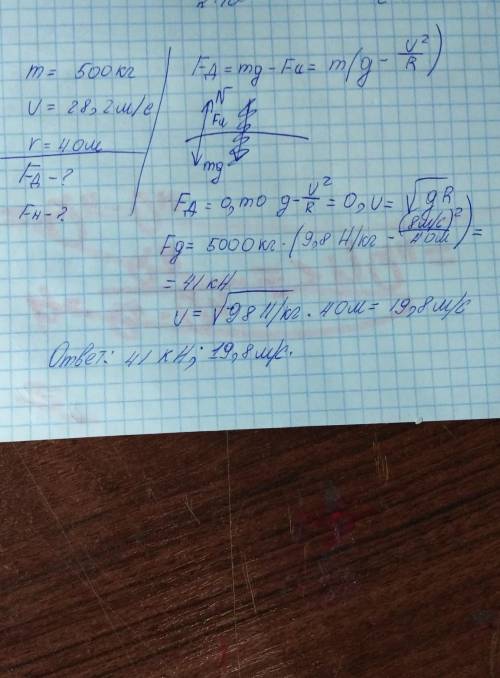 m = 500кг
υ = 28,2м/с
r = 40м
Fд - ?
Fн - ?
Fд = mg - Fц = m(g - υ²/R)
N
Fц
mg
Fд = 0, то g - υ²/R = 0, υ = √gR
Fg = 5000кг · (9,8 Н/кг - (8м/с)²/40м) =
= 41кН
υ = √98 Н/кг · 40м = 19,8м/с
Ответ: 41 кН; 19,8м/с.